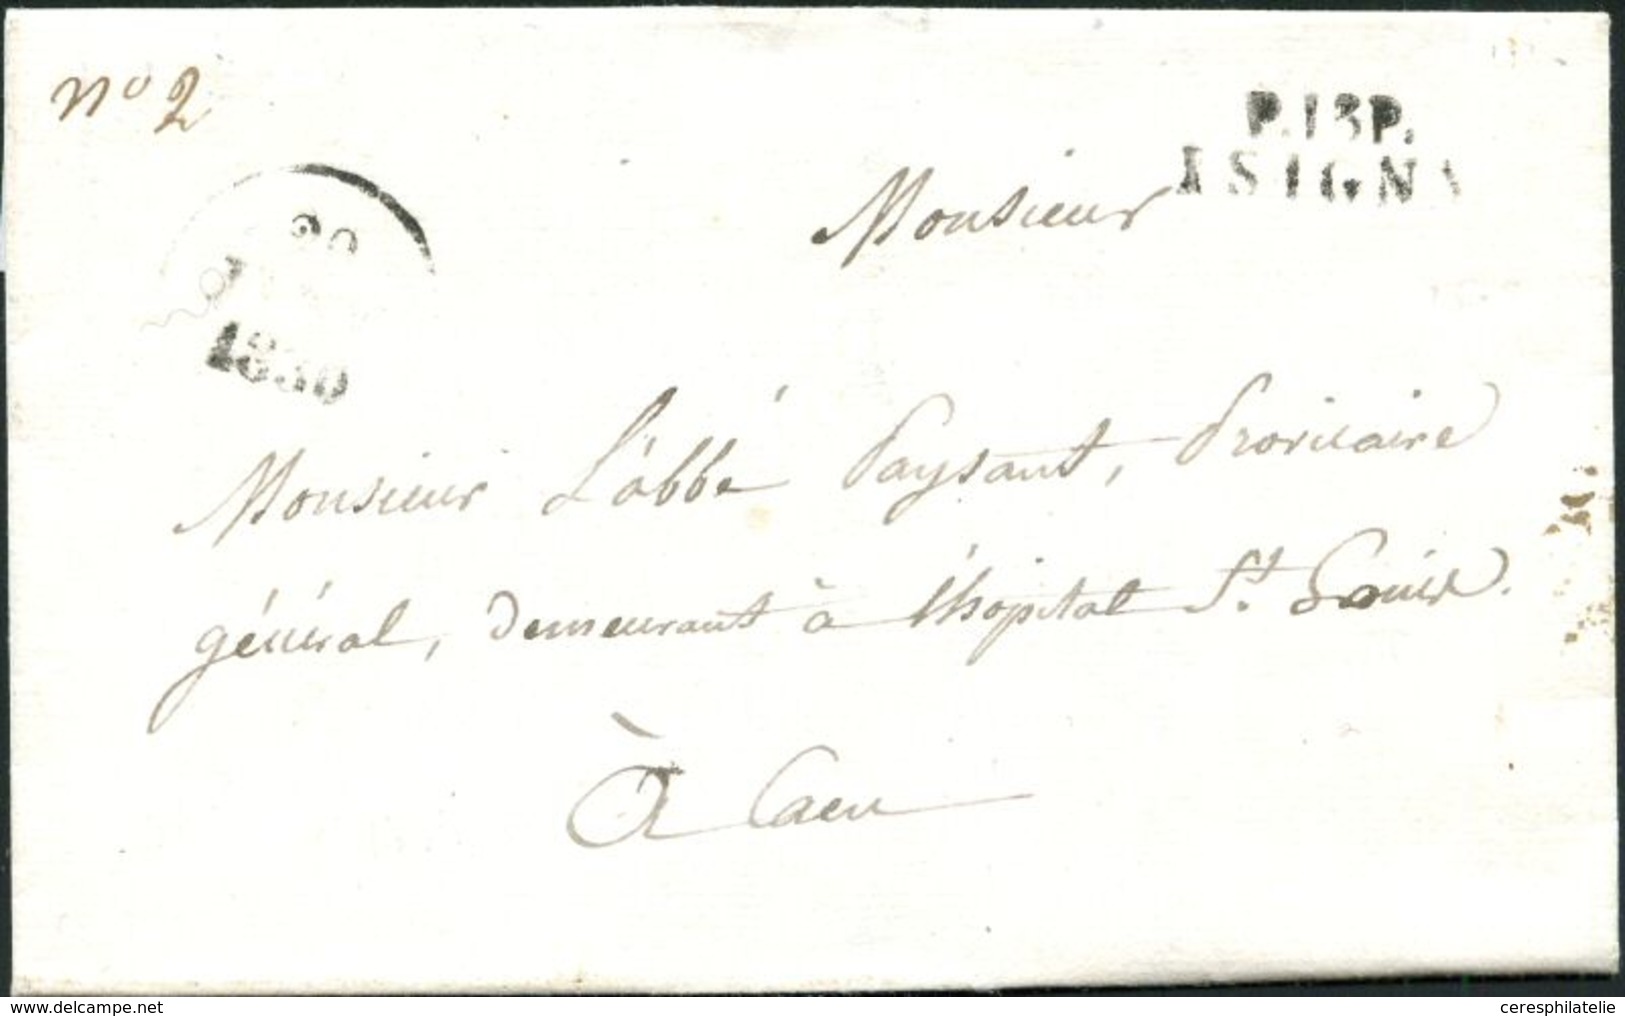 no 2
P.13P.
ISIGNY
Monsieur
20
1830
Monsieur L'abbé Paysant, Provicaire
général, demeurant à l'hôpital St. Louis.
À Caen
www.delcampe.net
ceresphilatelie